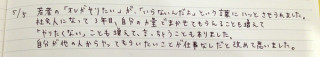 5/5 若者の「オレがやりたい」が、「いらないんだよ」という言葉にハッとさせられました。
社会人になって3年目、自分の力量でまかせてもらえることも増えて
「やりたくない」ことも増えて、さ、そうこともありました。
自分が他の人からやってもらいたいことが仕事なんだと改めて思いました。